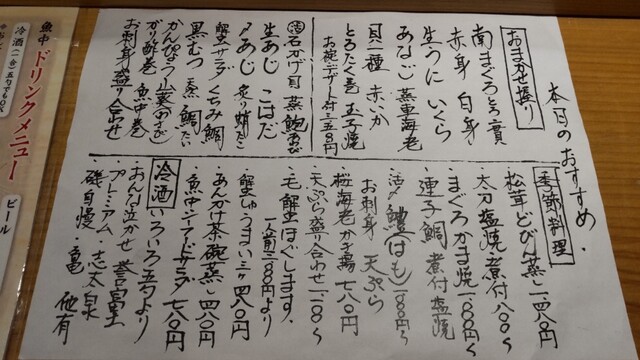 本日のおすすめ
おまかせ握り
南まぐろとろ二貫
赤身 白身
生うに いくら
あなご 蒸車海老
貝二種 赤いか
とろたく巻 玉子焼
お椀
蒸鮑
生あじ こはだ
〆あじ 炙り
蟹サラダ くちみ鯛
黒むつ 天然鯛
かんぴょう 山葵(わさび)
がり酢巻 魚中巻
お刺身盛り合わせ
季節料理
松茸どびん蒸し 一、四八〇円
太刀塩焼煮付
まぐろかま焼
連子鯛 煮付塩焼
活〆鱧(はも)
お刺身 天ぷら
桜海老かき揚 七八〇円
天ぷら盛り合わせ
毛蟹ほぐします。
より
蟹しゅうまい 三ヶ四八〇円
あんかけ茶碗蒸し 四八〇円
魚中シーフードサラダ 七八〇円
冷酒 いろいろ五勺より
おんな泣かせ 誉富士
プレミアム・志太泉
磯自慢・亀 他有
魚中 ドリンクメニュー
冷酒
ビール